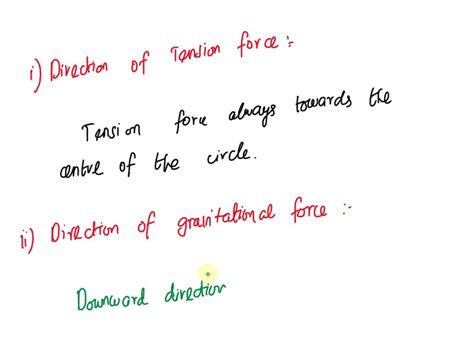 i) Direction of Tension force :-
Tension force always towards the
centre of the circle.
ii) Direction of gravitational force :-
Downward direction